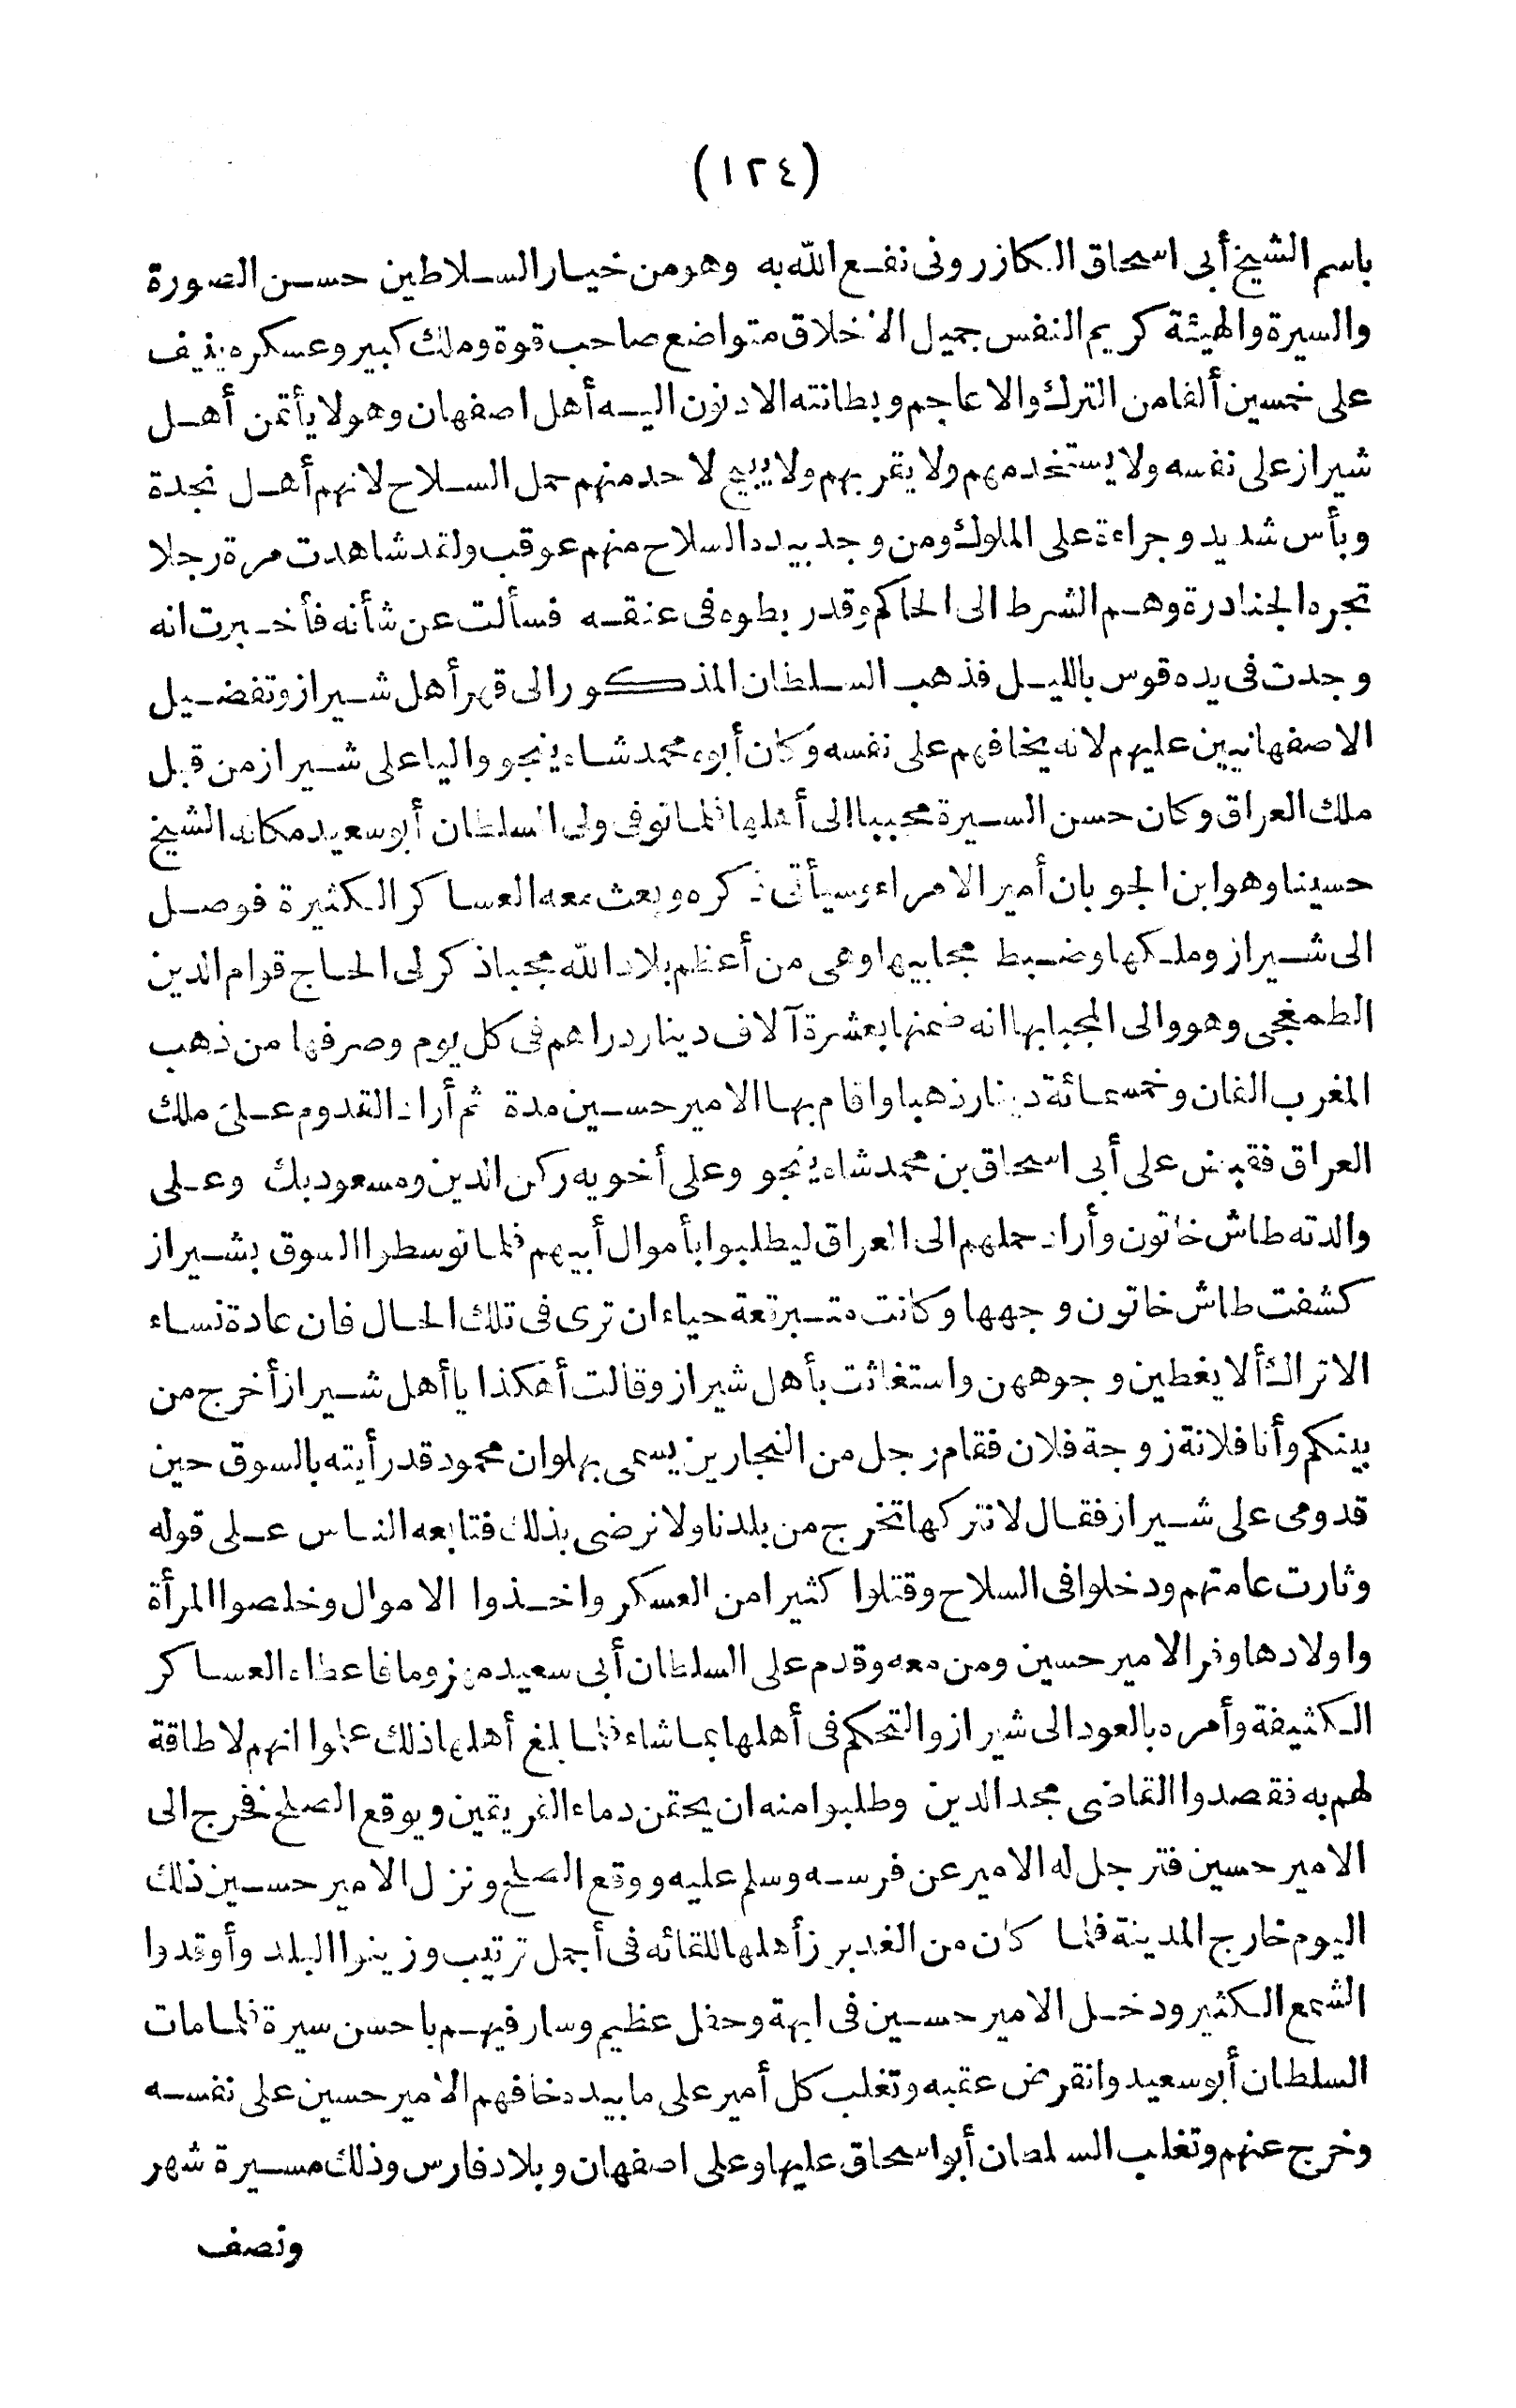 (١٢٤)
باسم الشيخ أبى اسحاق الكازرونى نفع الله به وهو من خيار السلاطين حسن الصورة
والسيرة والهيئة كريم النفس جميل الاخلاق متواضع صاحب قوة وملك كبير وعسكره ينيف
على خمسين ألفا من الترك والاعاجم وبطانته الادنون اليه أهل اصفهان وهو لا يأتمن أهل
شيراز على نفسه ولا يستخدمهم ولا يقربهم ولا يبيح لاحد منهم حمل السلاح لانهم أهل نجدة
وبأس شديد وجراءة على الملوك ومن وجد بيده السلاح منهم عوقب ولقد شاهدت مرة رجلا
تجره الجنادرة وهم الشرط الى الحاكم وقد ربطوه فى عنقه فسألت عن شأنه فأخبرت انه
وجدت فى يده قوس بالليل فذهب السلطان المذكور الى قهر أهل شيراز وتفضيل
الاصفهانيين عليهم لانه يخافهم على نفسه وكان أبوه محمد شاه ينجو واليا على شيراز من قبل
ملك العراق وكان حسن السيرة محببا الى أهلها فلما توفى ولى السلطان أبو سعيد مكانه الشيخ
حسينا وهو ابن الجوبان أمير الامراء وسيأتى ذكره وبعث معه العساكر الكثيرة فوصل
الى شيراز وملكها وضبط مجابيها وهى من أعظم بلاد الله مجبا ذكر لى الحاج قوام الدين
الطمغجى وهو والى المجبا بها انه ضمنها بعشرة آلاف دينار دراهم فى كل يوم وصرفها من ذهب
المغرب الفان وخمسمائة دينار ذهبا واقام بها الامير حسين مدة ثم أراد القدوم على ملك
العراق فقبض على أبى اسحاق بن محمد شاه ينجو وعلى أخويه ركن الدين ومسعود بك وعلى
والدته طاش خاتون وأراد حملهم الى العراق ليطلبوا بأموال أبيهم فلما توسطوا السوق بشيراز
كشفت طاش خاتون وجهها وكانت متبرقعة حياء ان ترى فى تلك الحال فان عادة نساء
الاتراك ألا يغطين وجوههن واستغاثت بأهل شيراز وقالت أهكذا يا أهل شيراز أخرج من
بينكم وأنا فلانة زوجة فلان فقام رجل من النجارين يسمى بهلوان محمود قد رأيته بالسوق حين
قدومى على شيراز فقال لا نتركها تخرج من بلدنا ولا نرضى بذلك فتابعه الناس على قوله
وثارت عامتهم ودخلوا فى السلاح وقتلوا كثيرا من العسكر واخذوا الاموال وخلصوا المرأة
واولادها وفر الامير حسين ومن معه وقدم على السلطان أبى سعيد مهزوما فاعطاه العساكر
الكثيفة وأمره بالعود الى شيراز والتحكم فى أهلها بما شاء فلما بلغ أهلها ذلك علموا انهم لا طاقة
لهم به فقصدوا القاضى مجد الدين وطلبوا منه ان يحقن دماء الفريقين ويوقع الصلح فخرج الى
الامير حسين فترجل له الامير عن فرسه وسلم عليه ووقع الصلح ونزل الامير حسين ذلك
اليوم خارج المدينة فلما كان من الغد برز أهلها للقائه فى أجمل ترتيب وزينوا البلد وأوقدوا
الشمع الكثير ودخل الامير حسين فى ابهة وحفل عظيم وسار فيهم باحسن سيرة فلما مات
السلطان أبو سعيد وانقرض عقبه وتغلب كل أمير على ما بيده خافهم الامير حسين على نفسه
وخرج عنهم وتغلب السلطان أبو اسحاق عليها وعلى اصفهان وبلاد فارس وذلك مسيرة شهر
ونصف